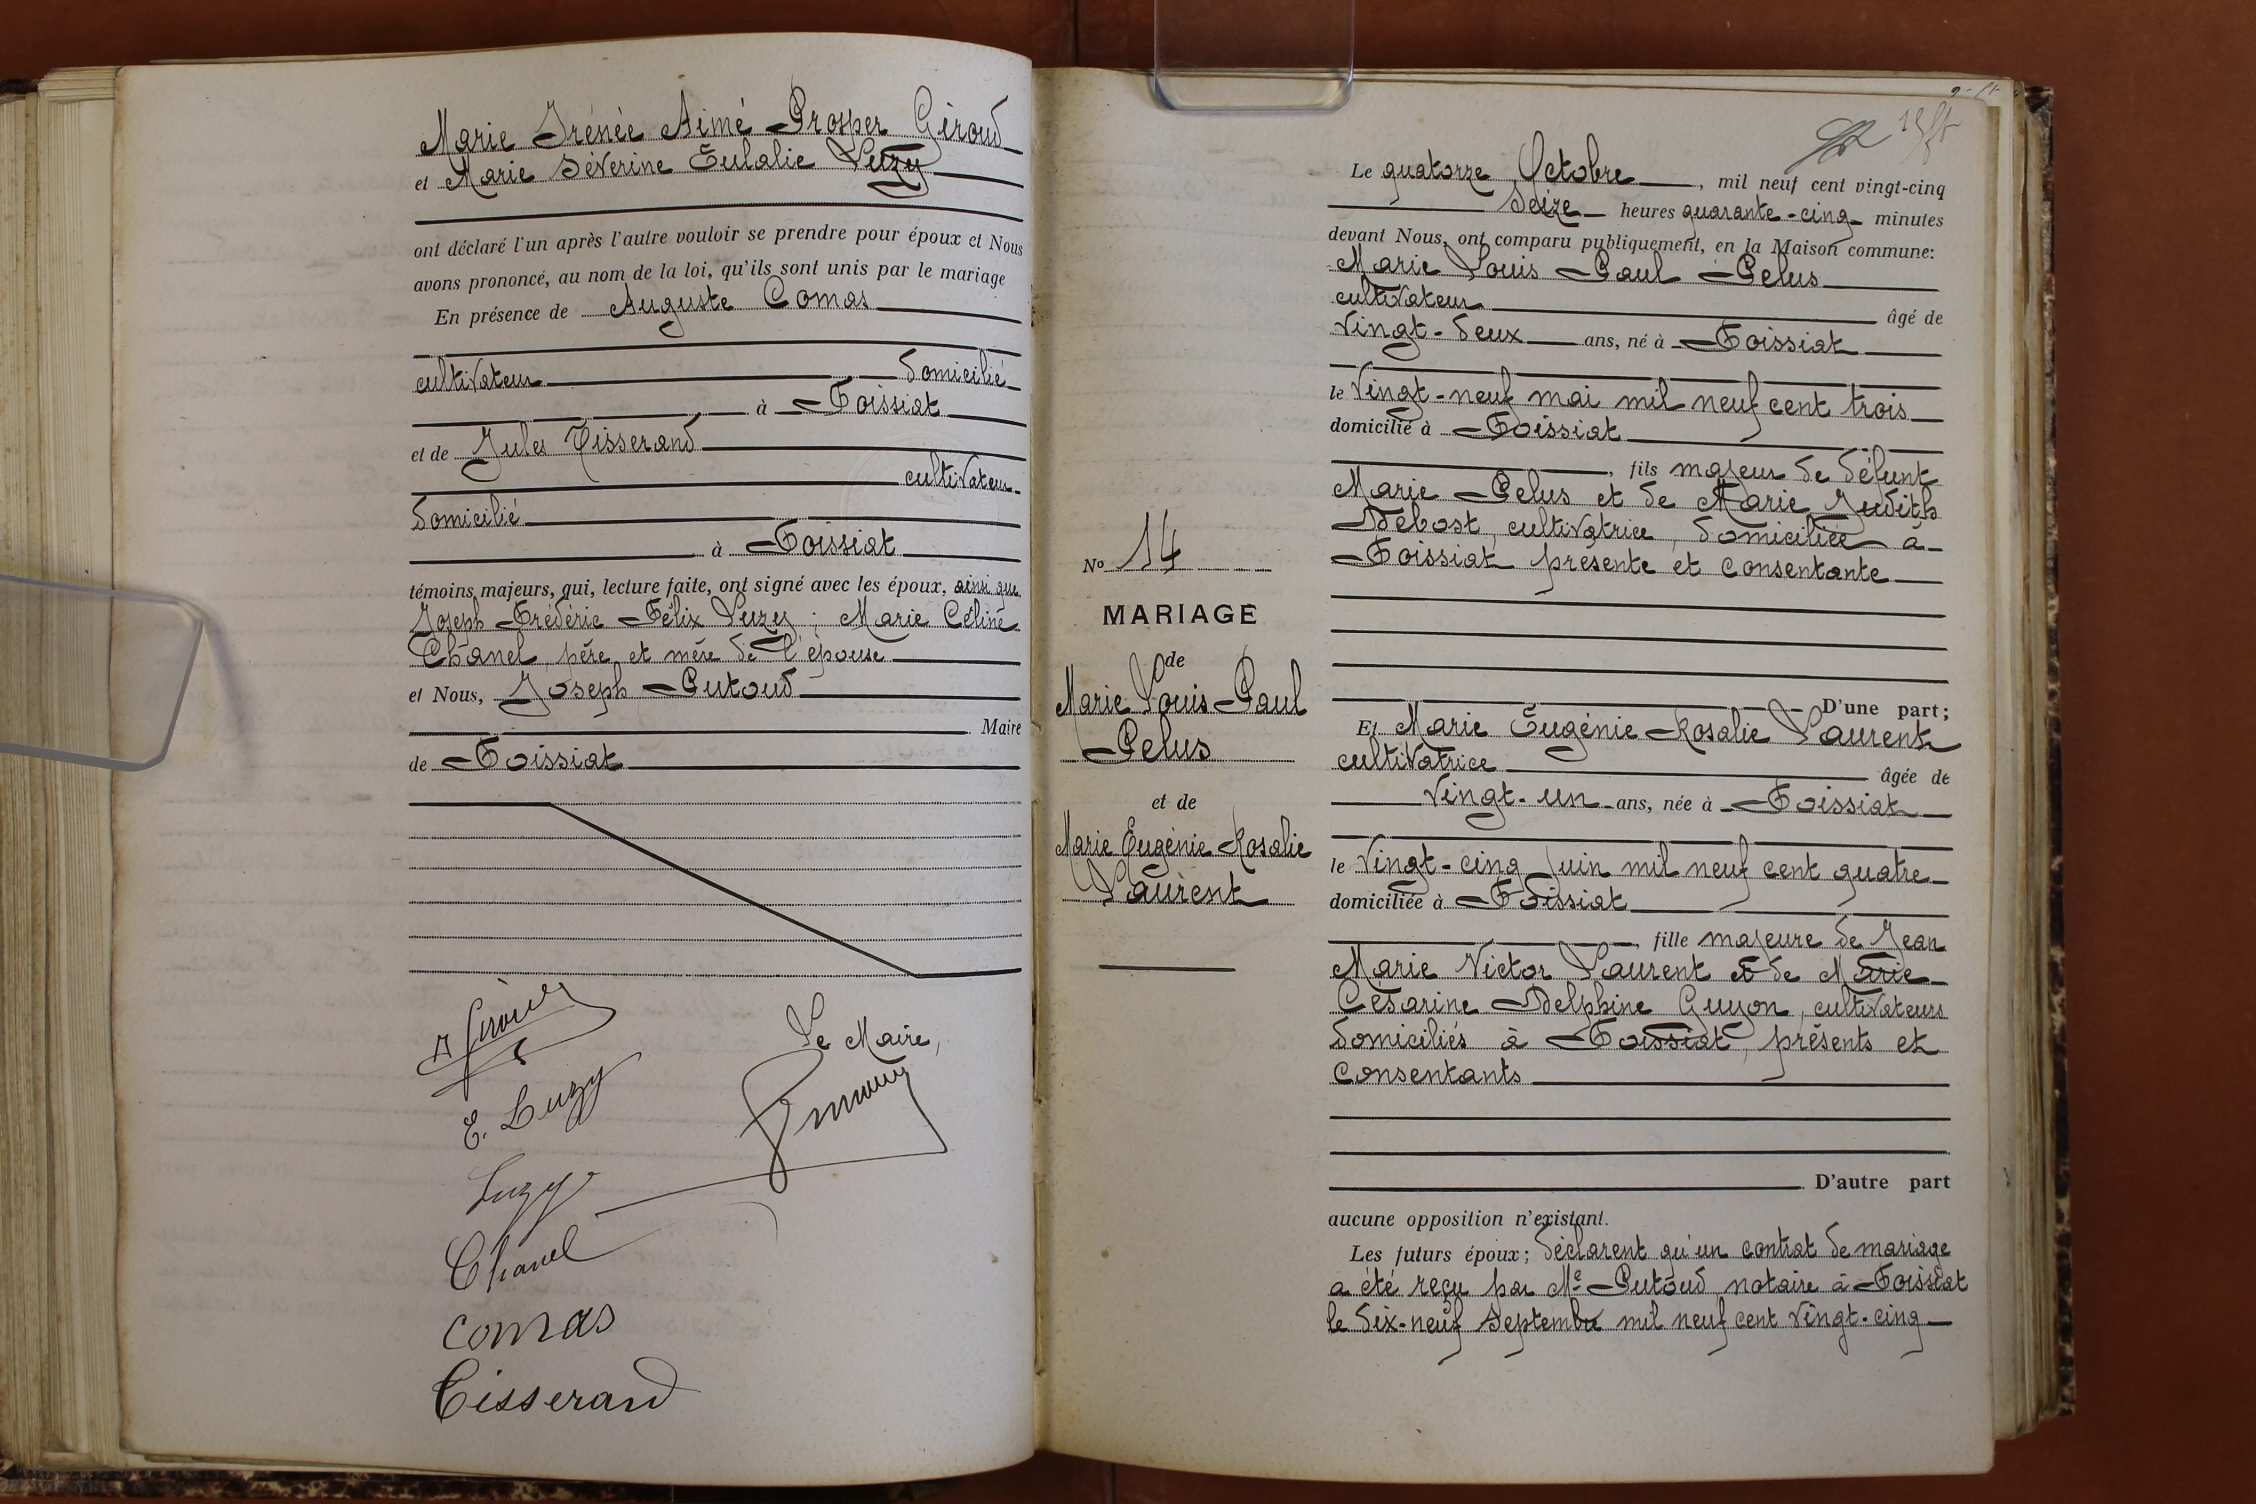 Marie Irénée Aimé Prosper Giroud
et Marie Séverine Eulalie Luzy
ont déclaré l'un après l'autre vouloir se prendre pour époux et Nous
avons prononcé, au nom de la loi, qu'ils sont unis par le mariage
En présence de Auguste Comas
cultivateur domicilié
à Foissiat
et de Jules Tisserand
cultivateur
domicilié
à Foissiat
témoins majeurs, qui, lecture faite, ont signé avec les époux, ainsi que
Joseph Frédéric Félix Luzy ; Marie Céline
Chanel, père et mère de l'épouse
et Nous, Joseph Putoud
Maire
de Foissiat
Le Maire,
E. Luzy
Luzy
Chanel
Comas
Tisserand
No 14
MARIAGE
de
Marie Louis Paul
Pelus
et de
Marie Eugénie Rosalie
Laurent
Le quatorze Octobre, mil neuf cent vingt-cinq
Seize heures quarante-cinq minutes
devant Nous, ont comparu publiquement, en la Maison commune:
Marie Louis Paul Pelus
cultivateur âgé de
vingt-deux ans, né à Foissiat
le vingt-neuf mai mil neuf cent trois
domicilié à Foissiat
, fils majeur de défunt
Marie Pelus et de Marie Judith
Debost, cultivatrice, domiciliée à
Foissiat présente et consentante
D'une part;
Et Marie Eugénie Rosalie Laurent
cultivatrice âgée de
vingt-un ans, née à Foissiat
le vingt-cinq juin mil neuf cent quatre
domiciliée à Foissiat
, fille majeure de Jean
Marie Victor Laurent et de Marie
Césarine Delphine Guyon, cultivateurs
domiciliés à Foissiat, présents et
consentants
D'autre part
aucune opposition n'existant.
Les futurs époux; déclarent qu'un contrat de mariage
a été reçu par Me Putoud notaire à Foissiat
le dix-neuf Septembre mil neuf cent vingt-cinq